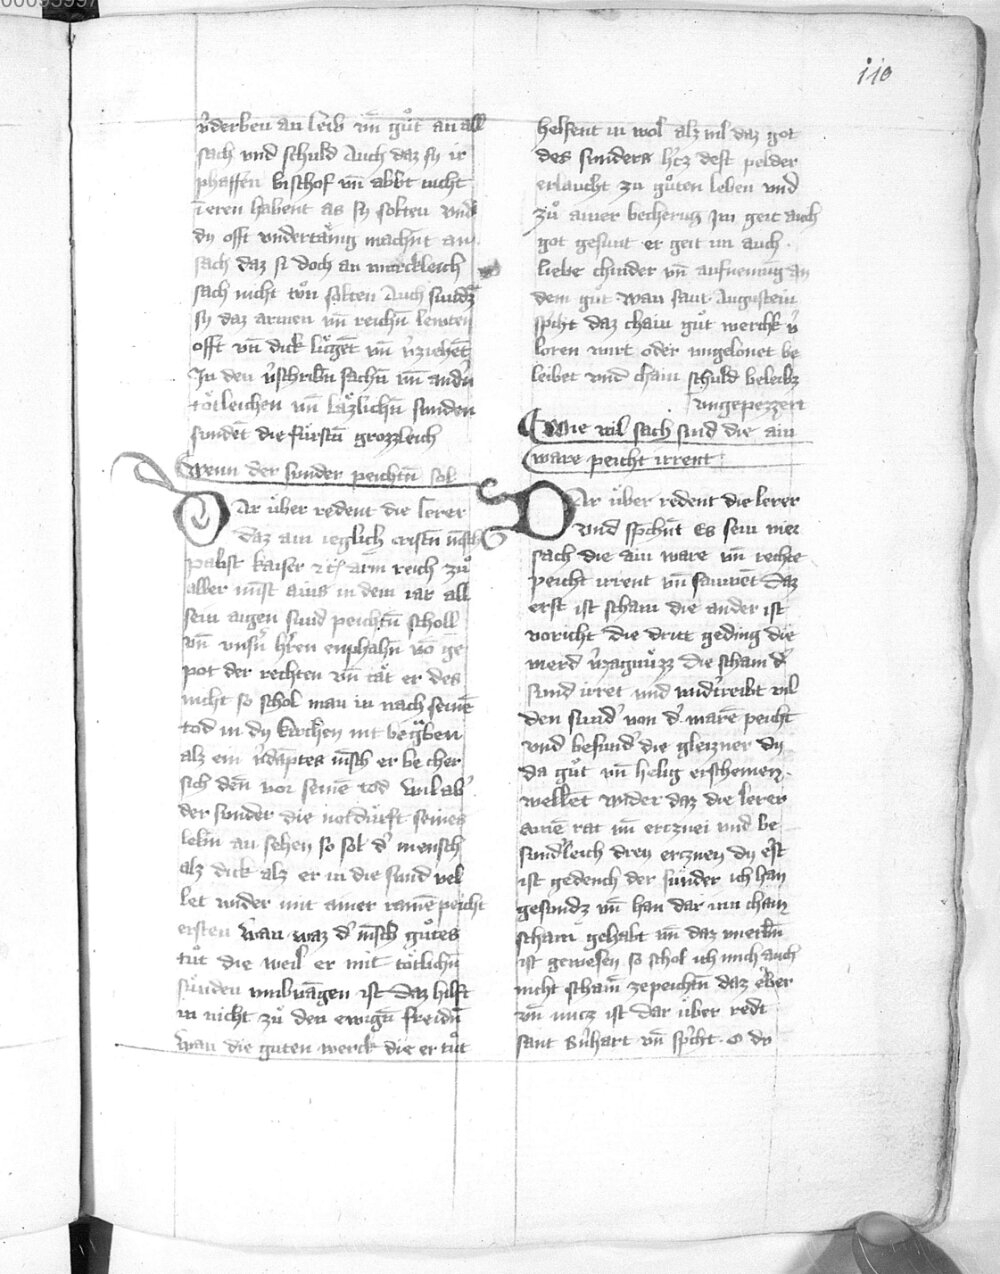 110
v̓derben an leib vn̄ guͦt an all
sach vnd schuld Auch daz sy ir
phaffen bischof vn̄ abbt nicht
in eren habent as sy solten vnd
dy offt vndertänig machn̄t an
sach daz si doch an merckleich
sach nicht tuͦn solten Auch sündz
sy daz armen vn̄ reichn̄ lewten
offt vn̄ dick lügēt vn̄ v̓ziehēt
In den v̓schribn̄ sachn̄ vn̄ andn̓
tötleichen vn̄ läzlichn̄ sunden
sundēt die fürstn̄ grozzleich
Wenn der sunder peichtn̄ sol
Dar über redent die lerer
daz ain ieglich cristn̄ mēsch
pabst kaiser arm reich zuͦ
aller minst ains in dem iar all
sein aigen sund peichtn̄ scholl
vn̄ vnsn̓ hr̄en enphahn̄ vō ge
pot der rechten vn̄ tät er des
nicht so schol man in nach seinē
tod in dy kirchen nit begraben
alz ein v̓dāptes mēsch er be cher
sich dēn vor seinē tod wil ab̓
der sunder die notdürft seines
lebn̄ an sehen so sol d̓ mensch
alz dick alz er in die sund vel
let wider mit ainer rainē peicht
ersten Wan waz d̓ mēsch guͦtes
tuͦt die weil er mit tötlichn̄
sünden vmbvāgen ist daz hilft
in nicht zuͦ den ewign̄ freidn̄
Wan die guten werck die er tuͦt
helfent in wol alz vil daz got
des sunders hercz dest pelder
erlaucht zu guͦten leben vnd
zuͦ ainer becherung Im geit auch
got gesunt er geit im auch
liebe chinder vn̄ aufnemūg an
dem guͦt wan sant Augustein
sp̓cht daz chain guͦt werchk v̓
loren wirt oder vngelonet be
leibet vnd chain schuld beleibz
vngepezzert
Wie vil sach sind die ain
ware peicht irrent
Dar über redent die lerer
vnd sp̓chn̄t Es sein vier
sach die ain ware vn̄ rechte
peicht irrent vn̄ saumēt Daz
erst ist scham die ander ist
voricht die dritt geding die
vierd v̓zagnüzz die scham d̓
sund irret vnd wid̓treibt vil
den sund̓ von d̓ warē peicht
vnd besund̓ die gleizner dy
da guͦt vn̄ heilig erscheinen
wellēt wider daz die lerer
ainē rat vn̄ ercznei vnd be
sund̓leich drey ercznei dy erst
ist gedench der sünder ich han
gesundz vn̄ han dar inn chain
scham gehabt vn̄ daz
ist gewesen so schol ich mich auch
nicht scham̄ zepeichtn̄ daz erber
vn̄ nucz ist dar über redt
sant Bn̓hart vn̄ sp̓cht o du